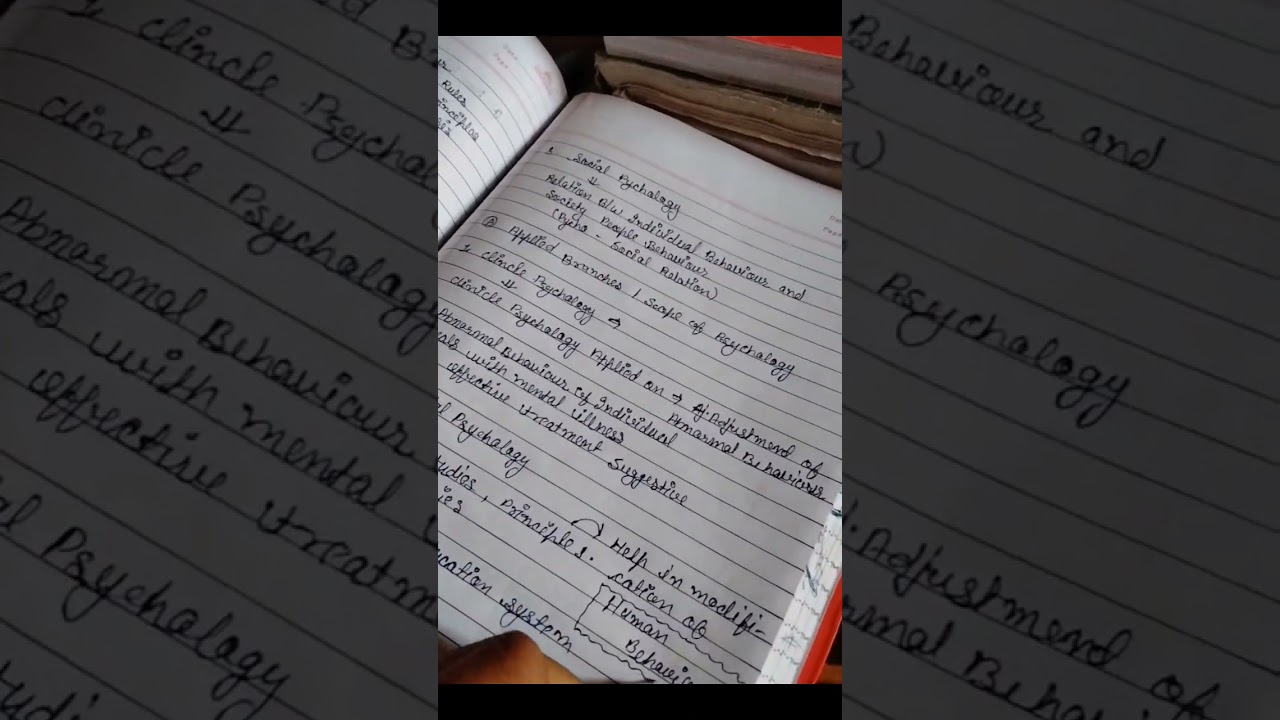 Rules
inciples
Social Pychology
Relation B/w Individual Behaviour and
Society People Behaviour
(Pycho - Social Relation)
B Applied Branches / Scope of Psychology
1 Clincle Psychology →
Clinicle Psychology Applied on → Adjustmend of
Abnormal Behaviour
Abnormal Behaviour of Individual
eals with mental illness
effective treatment Suggestive
al Psychology
tudies, Principles.
Help in modifi-
cation of
Human
Behavio
ies
ucation system